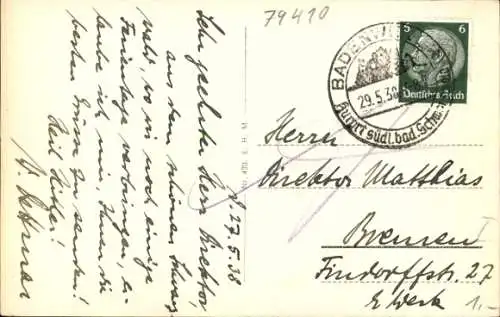 79410
27.5.38
Sehr geehrter Herr Direktor!
Aus dem schönen Schwarz-
wald, wo wir noch einige
Ferientage verbringen, er-
laube ich mir, Ihnen die
besten Grüße zu senden!
Heil Hitler!
Nr. 473 E. H. M.
BADENWEILER
29.5.38
Kurort südl. bad. Schw.
5 6
Deutsches Reich
Herrn
Direktor Matthias
Bremen I
Findorffstr. 27
E Werk
1.-